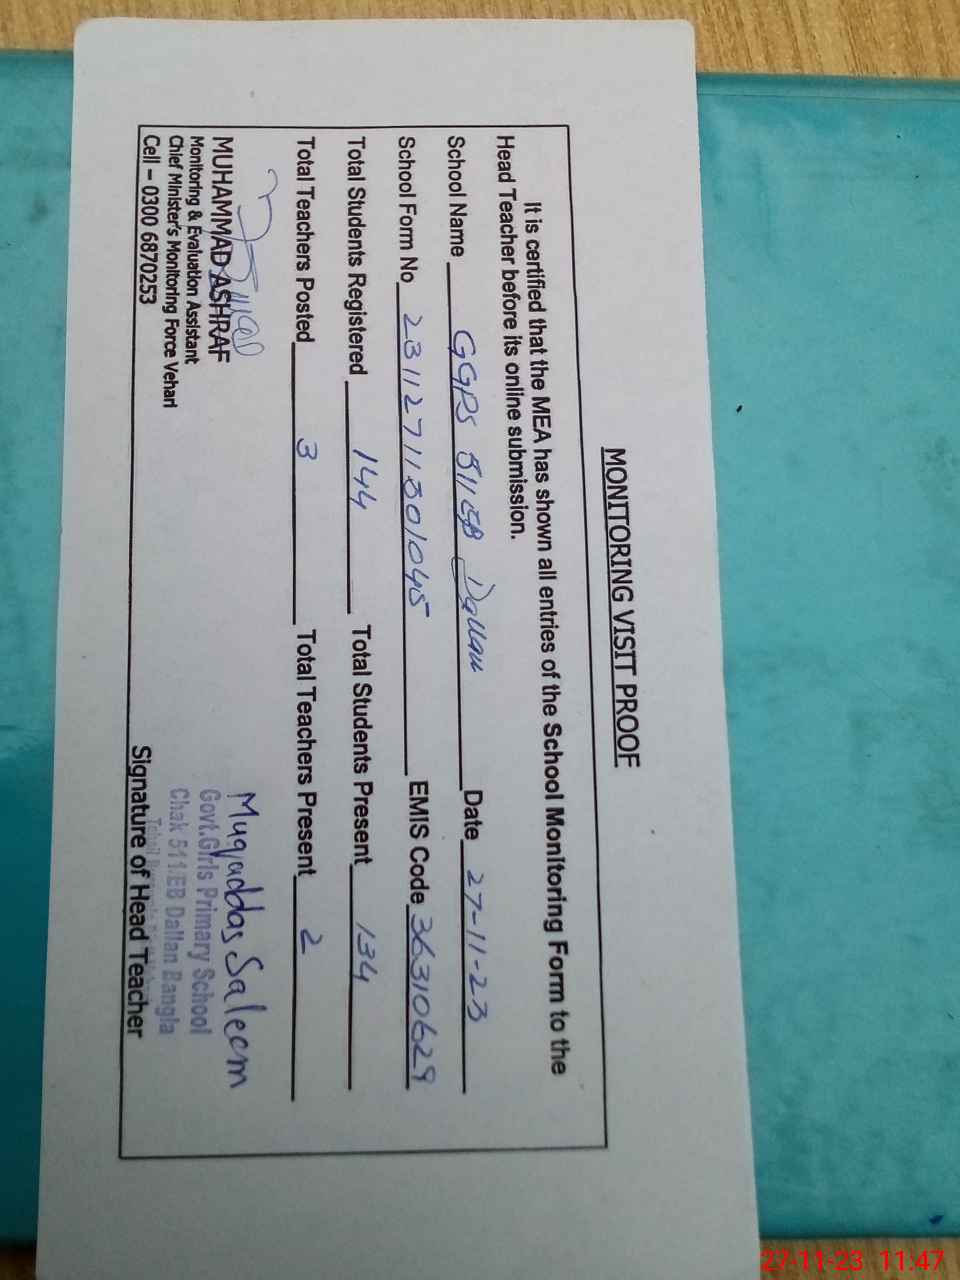 MONITORING VISIT PROOF
It is certified that the MEA has shown all entries of the School Monitoring Form to the
Head Teacher before its online submission.
School Name GGPS 511 EB Dallan Date 27-11-23
School Form No 23112711301045 EMIS Code 36310629
Total Students Registered 144 Total Students Present 134
Total Teachers Posted 3 Total Teachers Present 2
MUHAMMAD ASHRAF
Monitoring & Evaluation Assistant
Chief Minister's Monitoring Force Vehari
Cell – 0300 6870253
Muqaddas Saleem
Govt.Girls Primary School
Chak 511/EB Dallan Bangla
Signature of Head Teacher
27-11-23 11:47